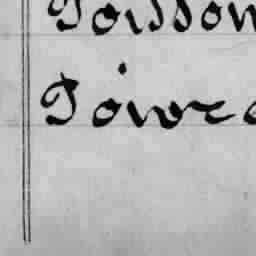 Poisson
Poivre